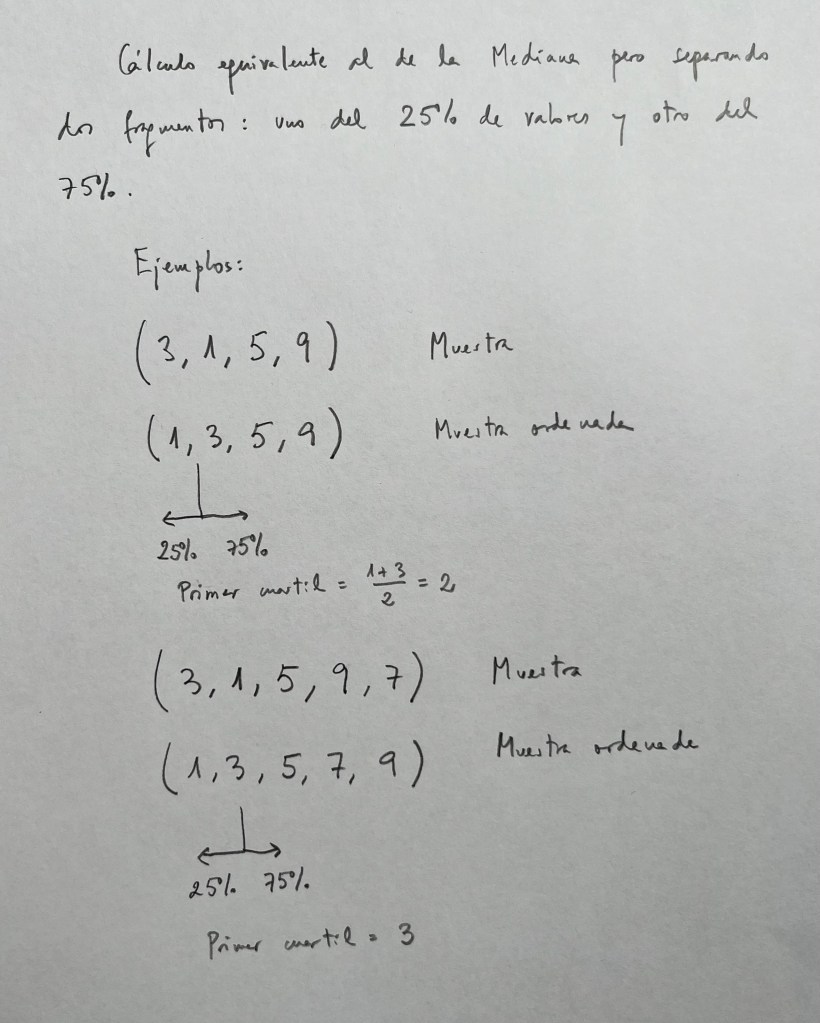 Cálculo equivalente al de la Mediana pero separando
dos fragmentos: uno del 25% de valores y otro del
75%.
Ejemplos:
(3, 1, 5, 9) Muestra
(1, 3, 5, 9) Muestra ordenada
25% 75%
Primer cuartil = 1+3/2 = 2
(3, 1, 5, 9, 7) Muestra
(1, 3, 5, 7, 9) Muestra ordenada
25% 75%.
Primer cuartil = 3